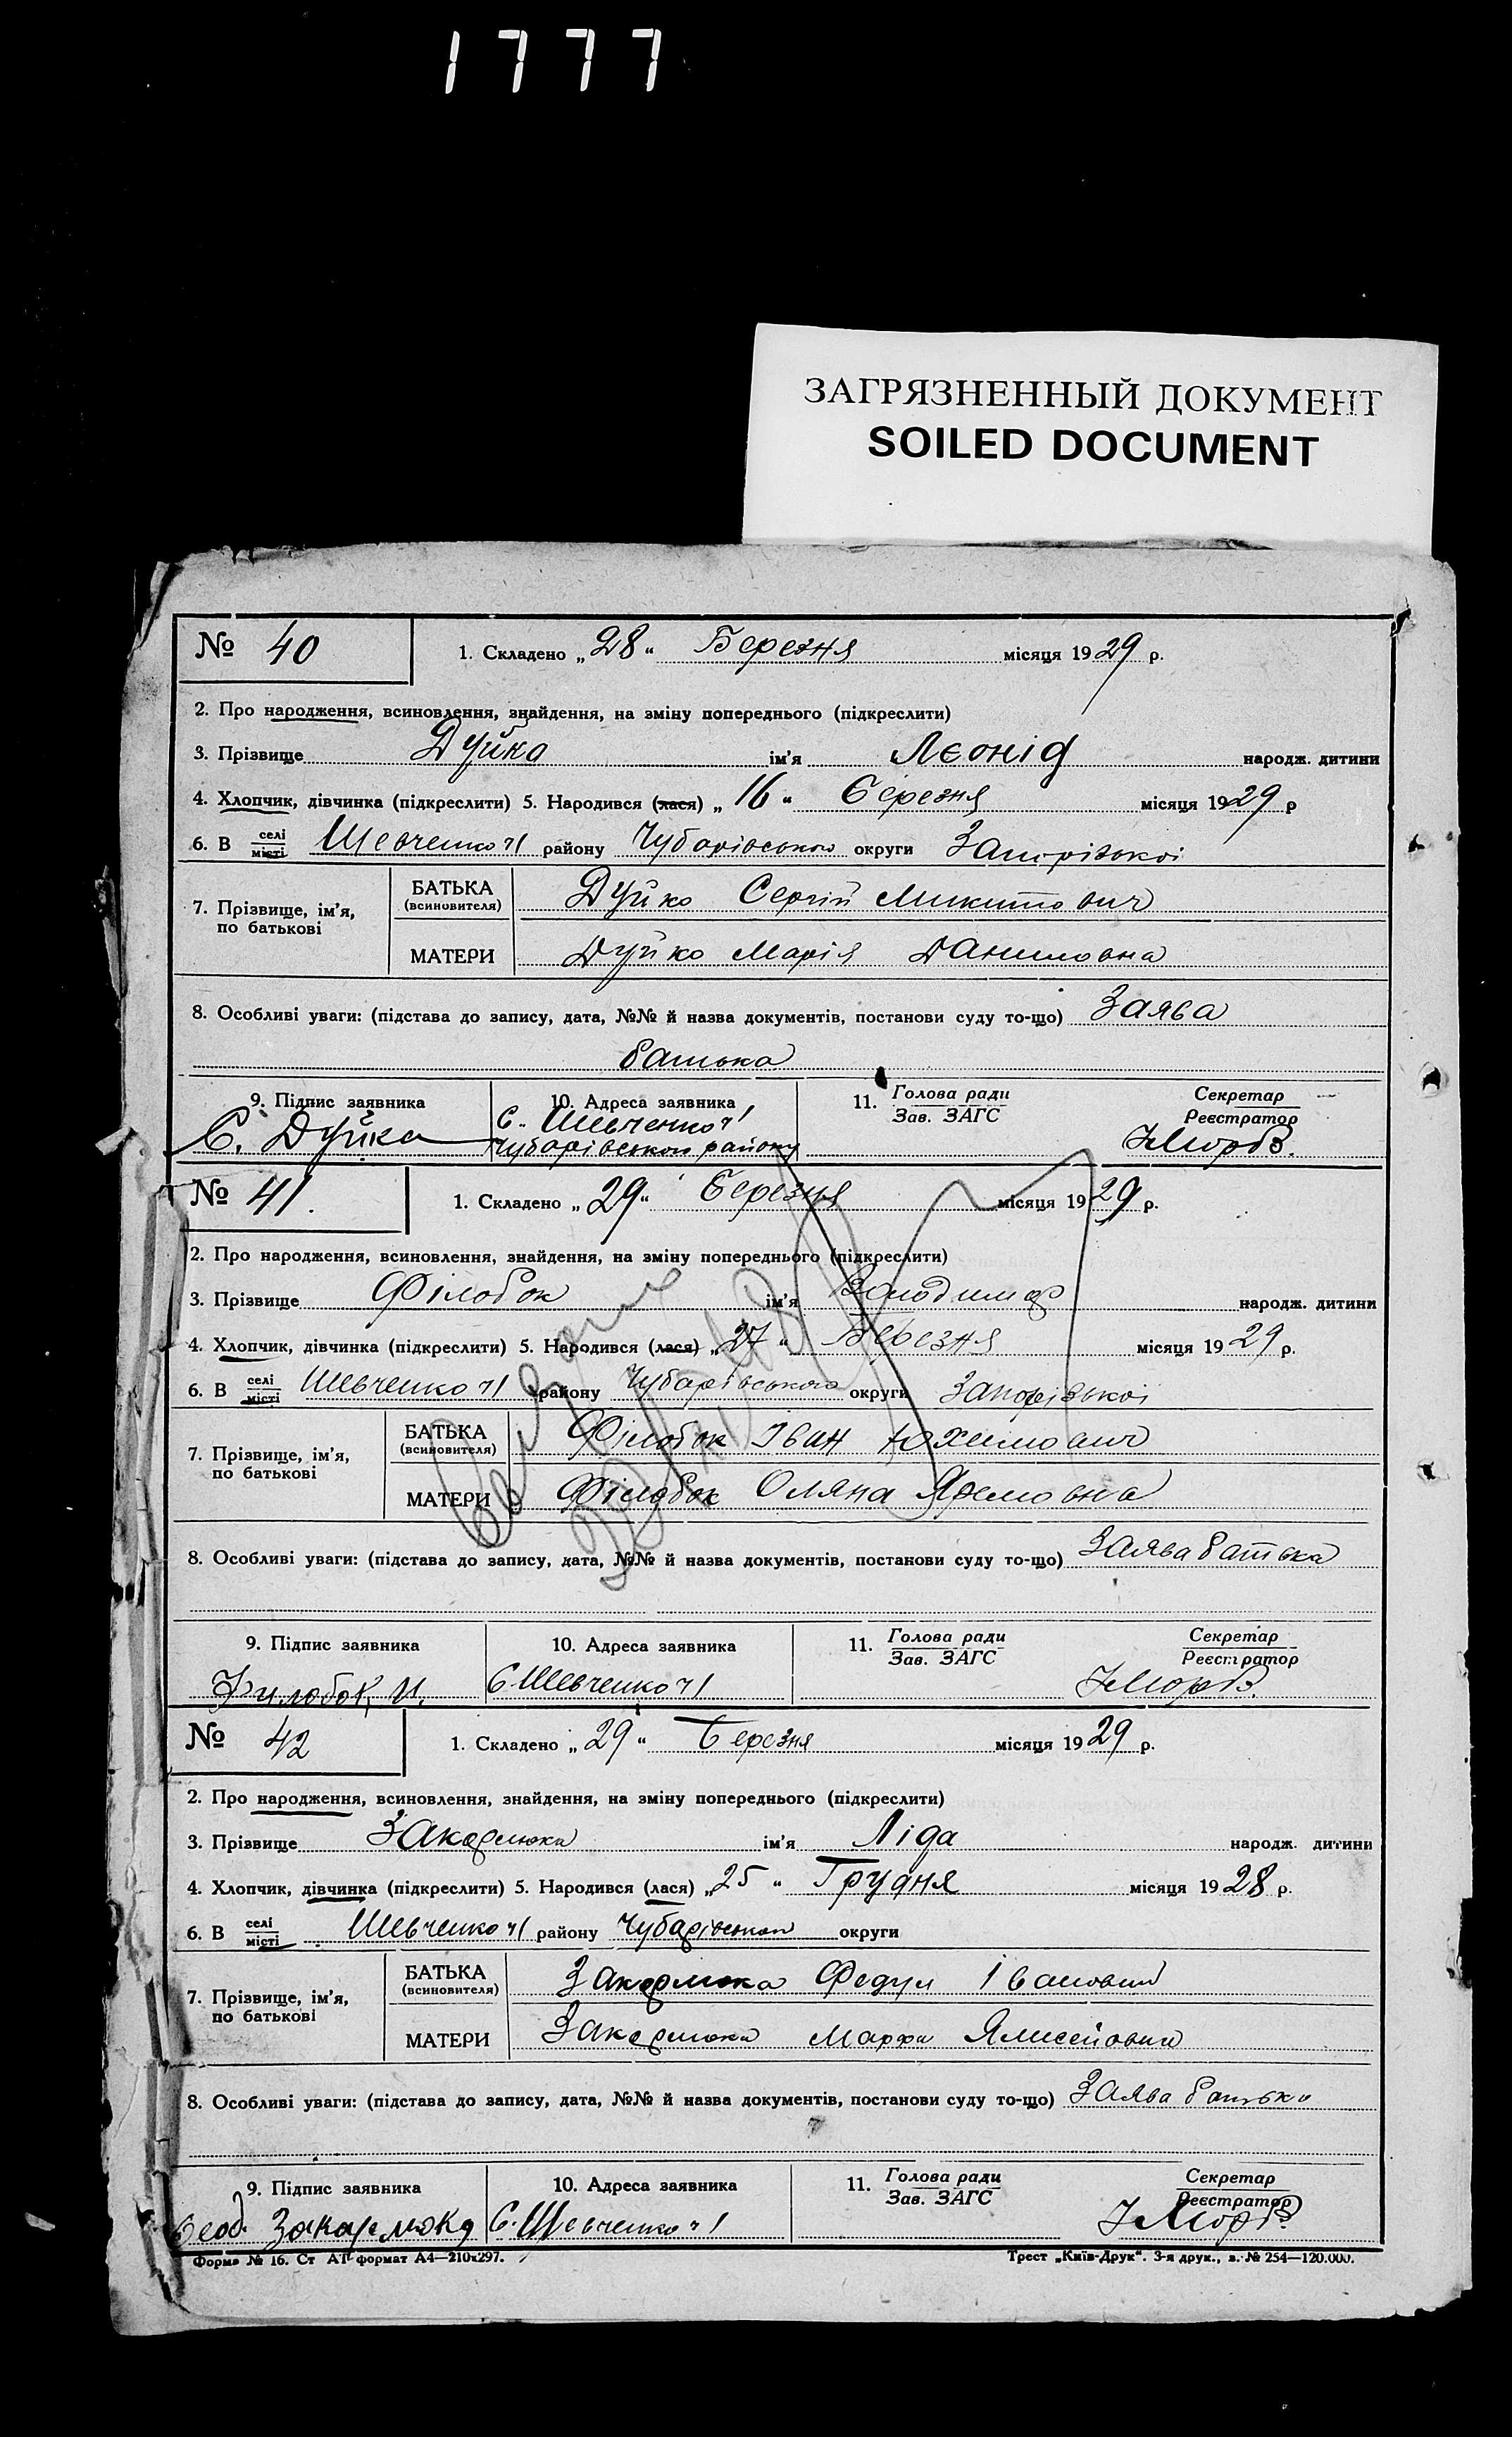 1777
ЗАГРЯЗНЕННЫЙ ДОКУМЕНТ
SOILED DOCUMENT
№ 40 1. Складено „28“ Березня місяця 1929 р.
2. Про народження, всиновлення, знайдення, на зміну попереднього (підкреслити)
3. Прізвище Дуйка ім'я Лєонід народж. дитини
4. Хлопчик, дівчинка (підкреслити) 5. Народився (лася) „16“ березня місяця 1929 р
6. В селі місті Шевченко 1 району Чубарівського округи Запорізької
7. Прізвище, ім'я, по батькові
БАТЬКА (всиновителя) Дуйко Сергій Микитович
МАТЕРИ Дуйко Марія Даниловна
8. Особливі уваги: (підстава до запису, дата, №№ й назва документів, постанови суду то-що) Заява
батька
9. Підпис заявника 10. Адреса заявника 11. Голова ради Зав. ЗАГС Секретар Реєстратор
С. Дуйка С. Шевченко 1
Чубарівського району
№ 41. 1. Складено „29“ березня місяця 1929 р.
2. Про народження, всиновлення, знайдення, на зміну попереднього (підкреслити)
3. Прізвище Філобок ім'я народж. дитини
4. Хлопчик, дівчинка (підкреслити) 5. Народився (лася) „27“ Березня місяця 1929 р.
6. В селі місті Шевченко 1 району Чубарівського округи Запорізької
7. Прізвище, ім'я, по батькові
БАТЬКА (всиновителя) Філобок Іван Юхимович
МАТЕРИ Філобок Оляна
8. Особливі уваги: (підстава до запису, дата, №№ й назва документів, постанови суду то-що) Заява батька
9. Підпис заявника 10. Адреса заявника 11. Голова ради Зав. ЗАГС Секретар Реєстратор
Филобок И. С Шевченко 1
№ 42 1. Складено „29“ Березня місяця 1929 р.
2. Про народження, всиновлення, знайдення, на зміну попереднього (підкреслити)
3. Прізвище Закарлюка ім'я Ліда народж. дитини
4. Хлопчик, дівчинка (підкреслити) 5. Народився (лася) „25“ Грудня місяця 1928 р.
6. В селі місті Шевченко 1 району Чубарівського округи
7. Прізвище, ім'я, по батькові
БАТЬКА (всиновителя) Закарлюка Федул Іванович
МАТЕРИ Закарлюка Марфа
8. Особливі уваги: (підстава до запису, дата, №№ й назва документів, постанови суду то-що) Заява батька
9. Підпис заявника 10. Адреса заявника 11. Голова ради Зав. ЗАГС Секретар Реєстратор
Феод. Закарлюка С. Шевченко 1
Форма № 16. Ст АТ формат А4—210х297. Трест „Київ-Друк“. 3-я друк., з. № 254—120.000.